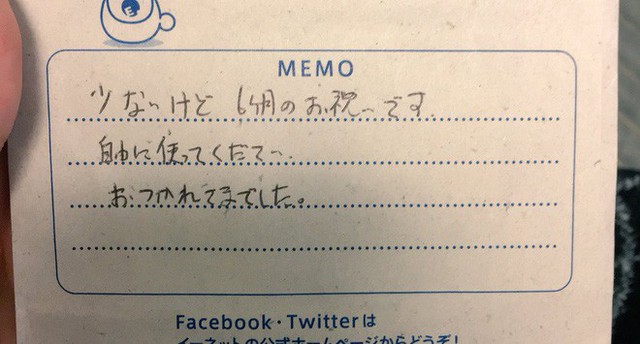 E
MEMO
少ないけど 6ヶ月のお祝いです
自由に使ってください
おつかれさまでした。
Facebook・Twitterは
イーネットの公式ホームページからどうぞ！